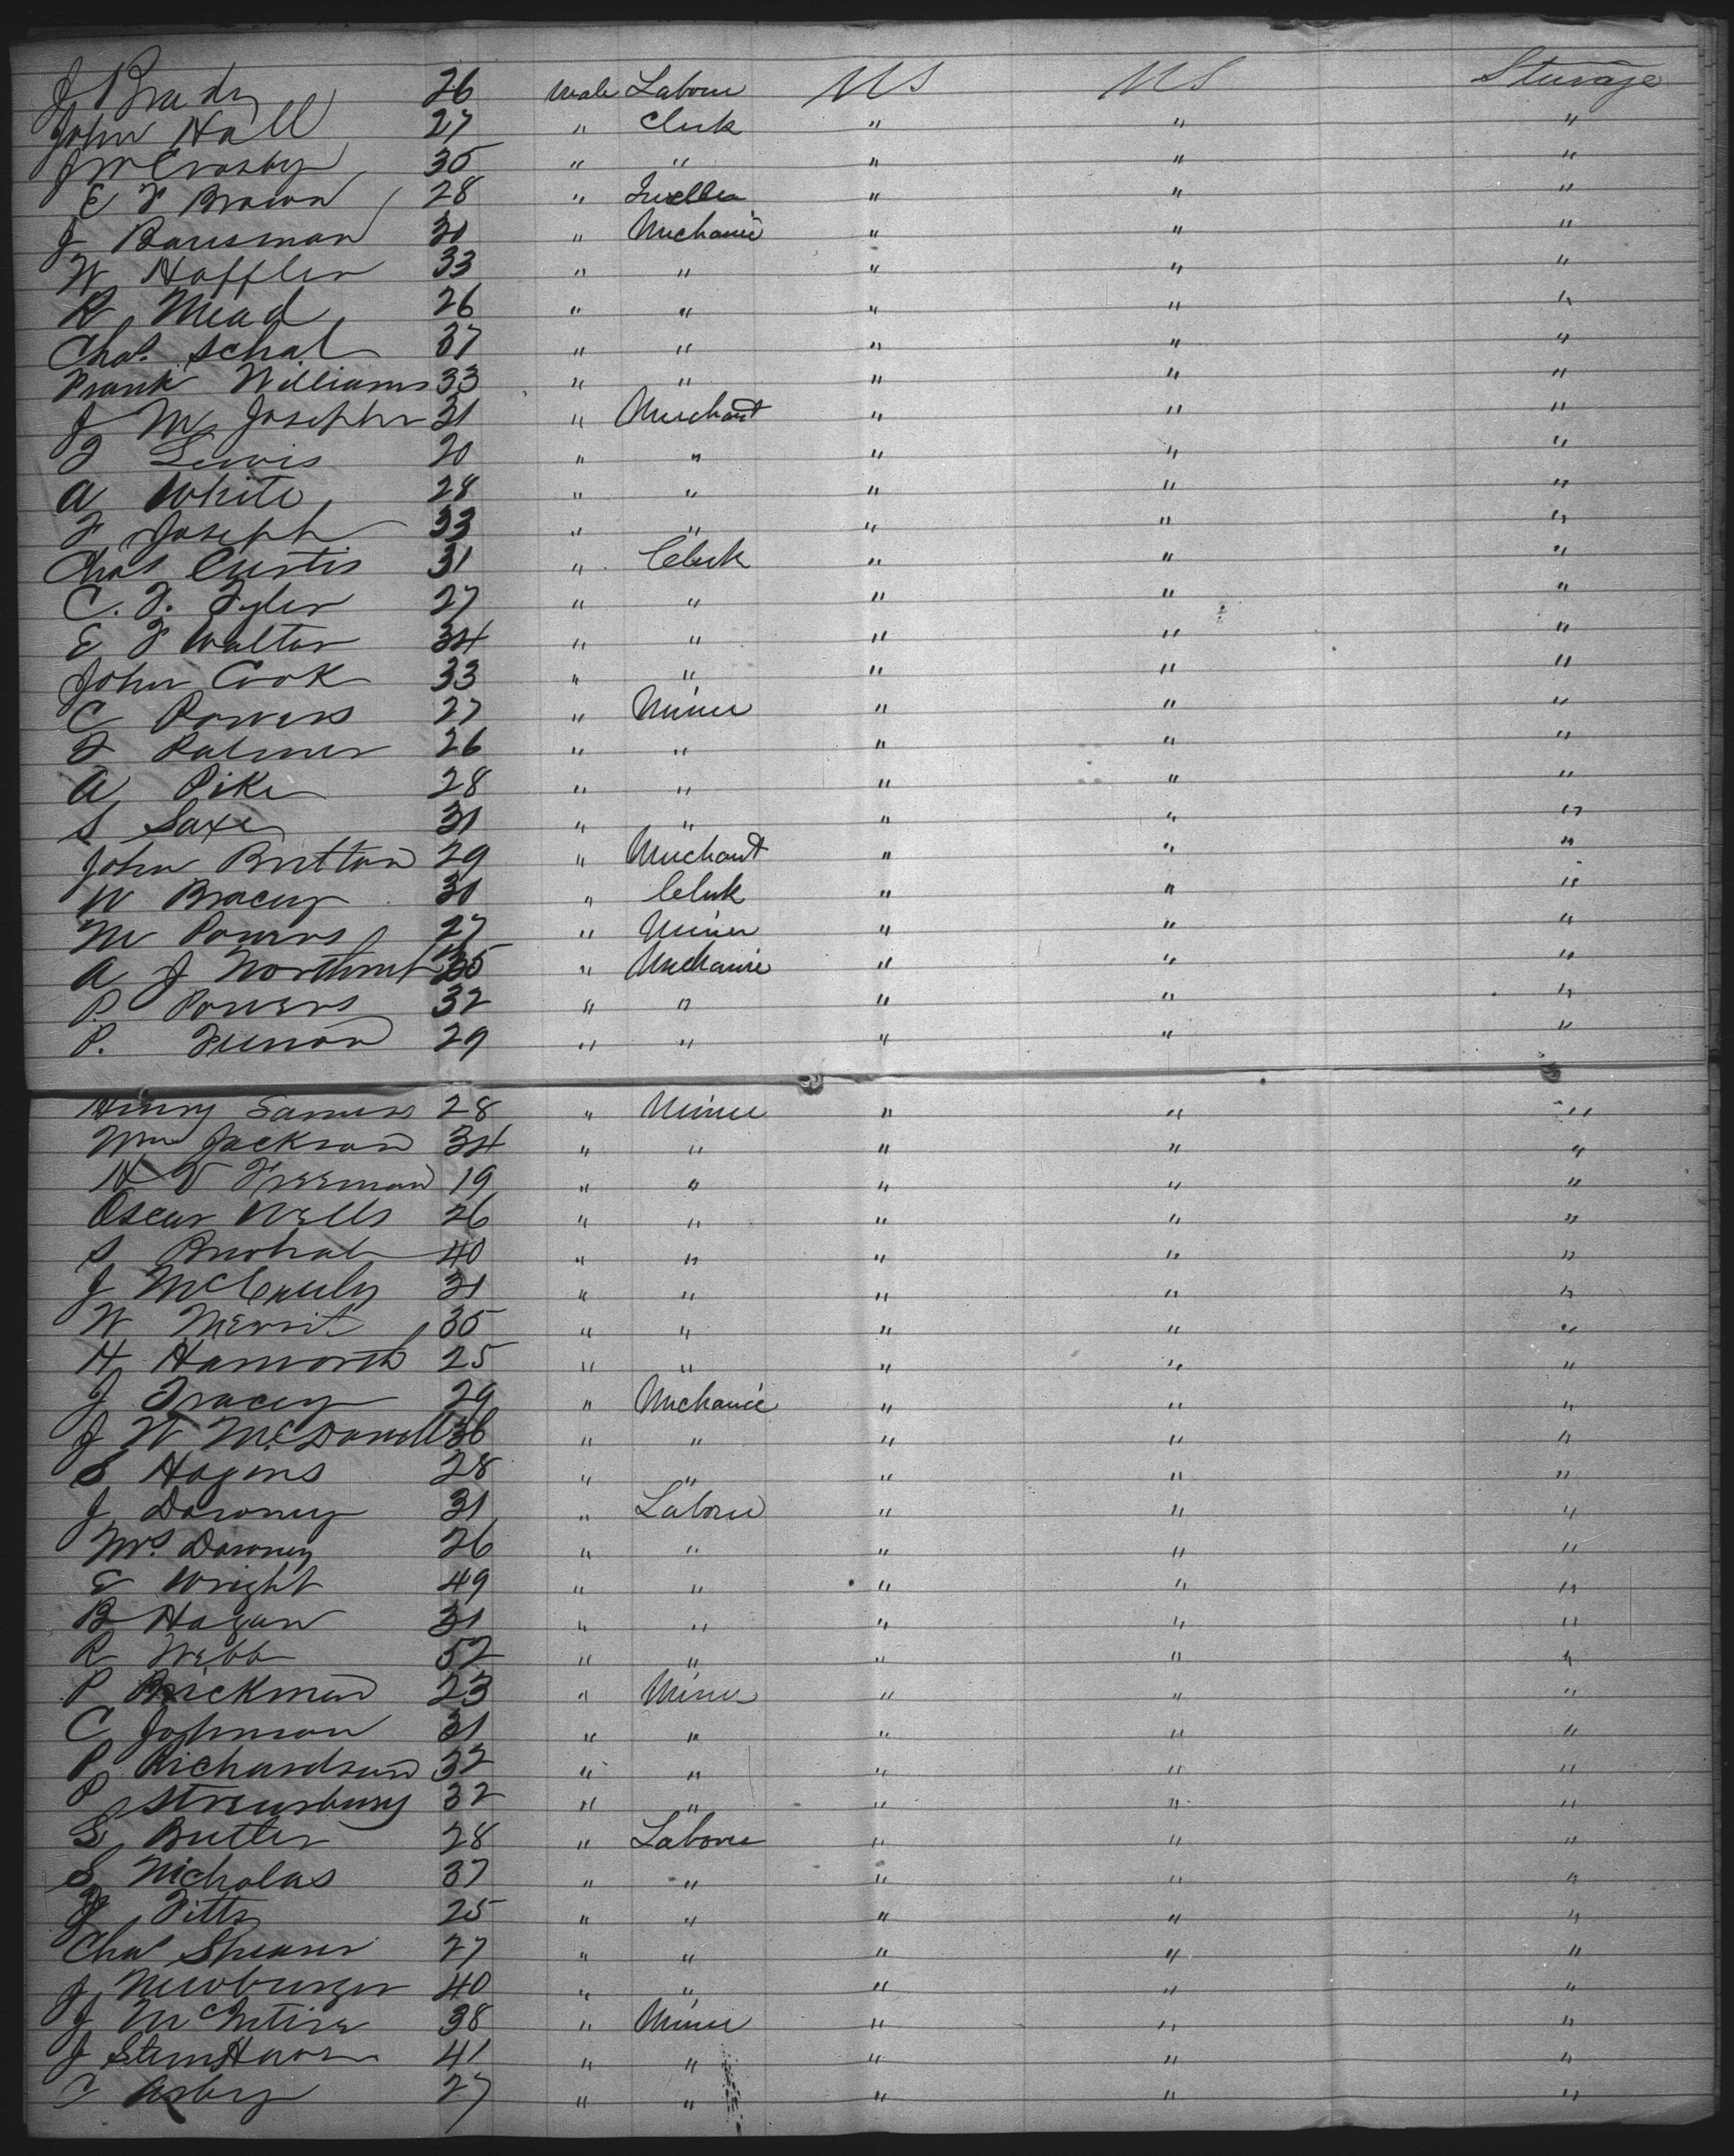 J Brady 26 male Laborer US US Steerage
John Hall 27 " Clerk " " "
J W Crosby 35 " " " " "
E F Brown 28 " " " "
J Bausman 31 " Mechanic " " "
W Haffler 33 " " " " "
R Mead 26 " " " " "
Chas. Schal 37 " " " " "
Frank Williams 33 " " " " "
J M Josephs 31 " Merchant " " "
F Lewis 20 " " " " "
A White 28 " " " " "
F Joseph 33 " " " " "
Chas Curtis 31 " Clerk " " "
C. F. Tyler 27 " " " " "
E F Walton 34 " " " " "
John Cook 33 " " " " "
C Powers 27 " Miner " " "
F Palmer 26 " " " " "
A Pike 28 " " " " "
S Saxe 31 " " " " "
John Britton 29 " Merchant " " "
W Bracey 30 " Clerk " " "
M Powers 27 " Miner " " "
A J " Mechanic " " "
P. Powers 32 " " " " "
P. 29 " " " " "
Henry 28 " Miner " " "
Wm Jackson 34 " " " " "
H V Freeman 19 " " " " "
Oscar Wells 26 " " " " "
S 40 " " " " "
J McCauly 31 " " " " "
W Merrit 35 " " " " "
H Haworth 25 " " " " "
J Tracey 29 " Mechanic " " "
J W McDowell 36 " " " " "
S Hagens 28 " " " " "
J Downey 31 " Laborer " " "
Mrs. Downey 26 " " " " "
E Wright 49 " " " " "
B Hagan 31 " " " " "
R Webb 52 " " " " "
P Brickman 23 " Miner " " "
C Johnson 31 " " " " "
P Richardson 32 " " " " "
P Strausbury 32 " " " " "
S Butler 28 " Laborer " " "
S Nicholas 37 " " " " "
Fitts 25 " " " " "
Chas Shearer 27 " " " " "
J Newburger 40 " " " " "
J McIntire 38 " Miner " " "
J 41 " " " " "
C Asbey 27 " " " " "